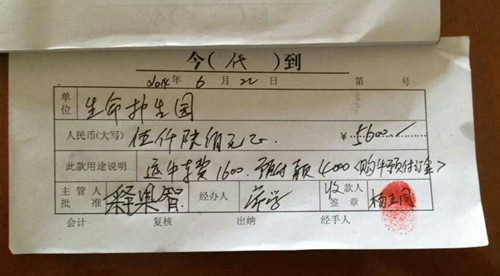 今(代)到
2014年6月22日 第 号
单位 生命护生园
人民币(大写) 伍仟陆佰元正 ¥5600
此款用途说明 运牛车费1600. 预付款4000(购牛预付订金)
主管人批准 释果智 经办人 收款人签章 杨
会计 复核 出纳 经手人